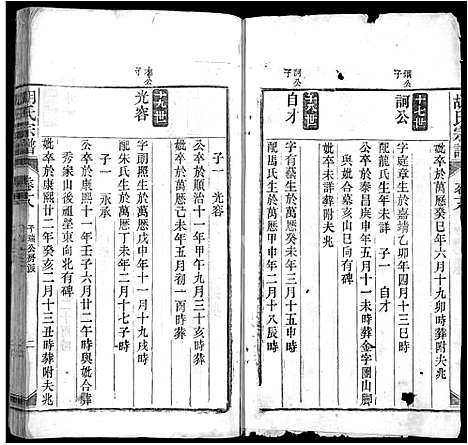 胡氏宗譜
妣卒於萬厯癸巳年六月十九卯時葬附夫兆
十七世
詞公
字庭章生於嘉靖乙卯年四月十三巳時
公卒於泰昌庚申年五月十一未時葬金字團山脚
與妣合墓亥山巳向有碑
配龍氏生年未詳 子一 自才
妣卒未詳葬附夫兆
詞公子
十八世
自才
字有義生於萬厯癸未年三月十五申時
配馬氏生於萬厯甲申年二月十八辰時
公卒於順治十一年甲午九月三十亥時葬
妣卒於萬厯己未年五月初一酉時葬
子一 光容
十九世
光容
字朗照生於萬厯戊申年十一月十九戌時
配朱氏生於萬厯丁未年二月十七子時
公卒於康熙十一年壬子六月廿二午時與妣合葬
秀家山後祖塋東向北有碑
妣卒於康熙廿二年癸亥二月十三丑時葬附夫兆
子一 永承
胡氏宗譜